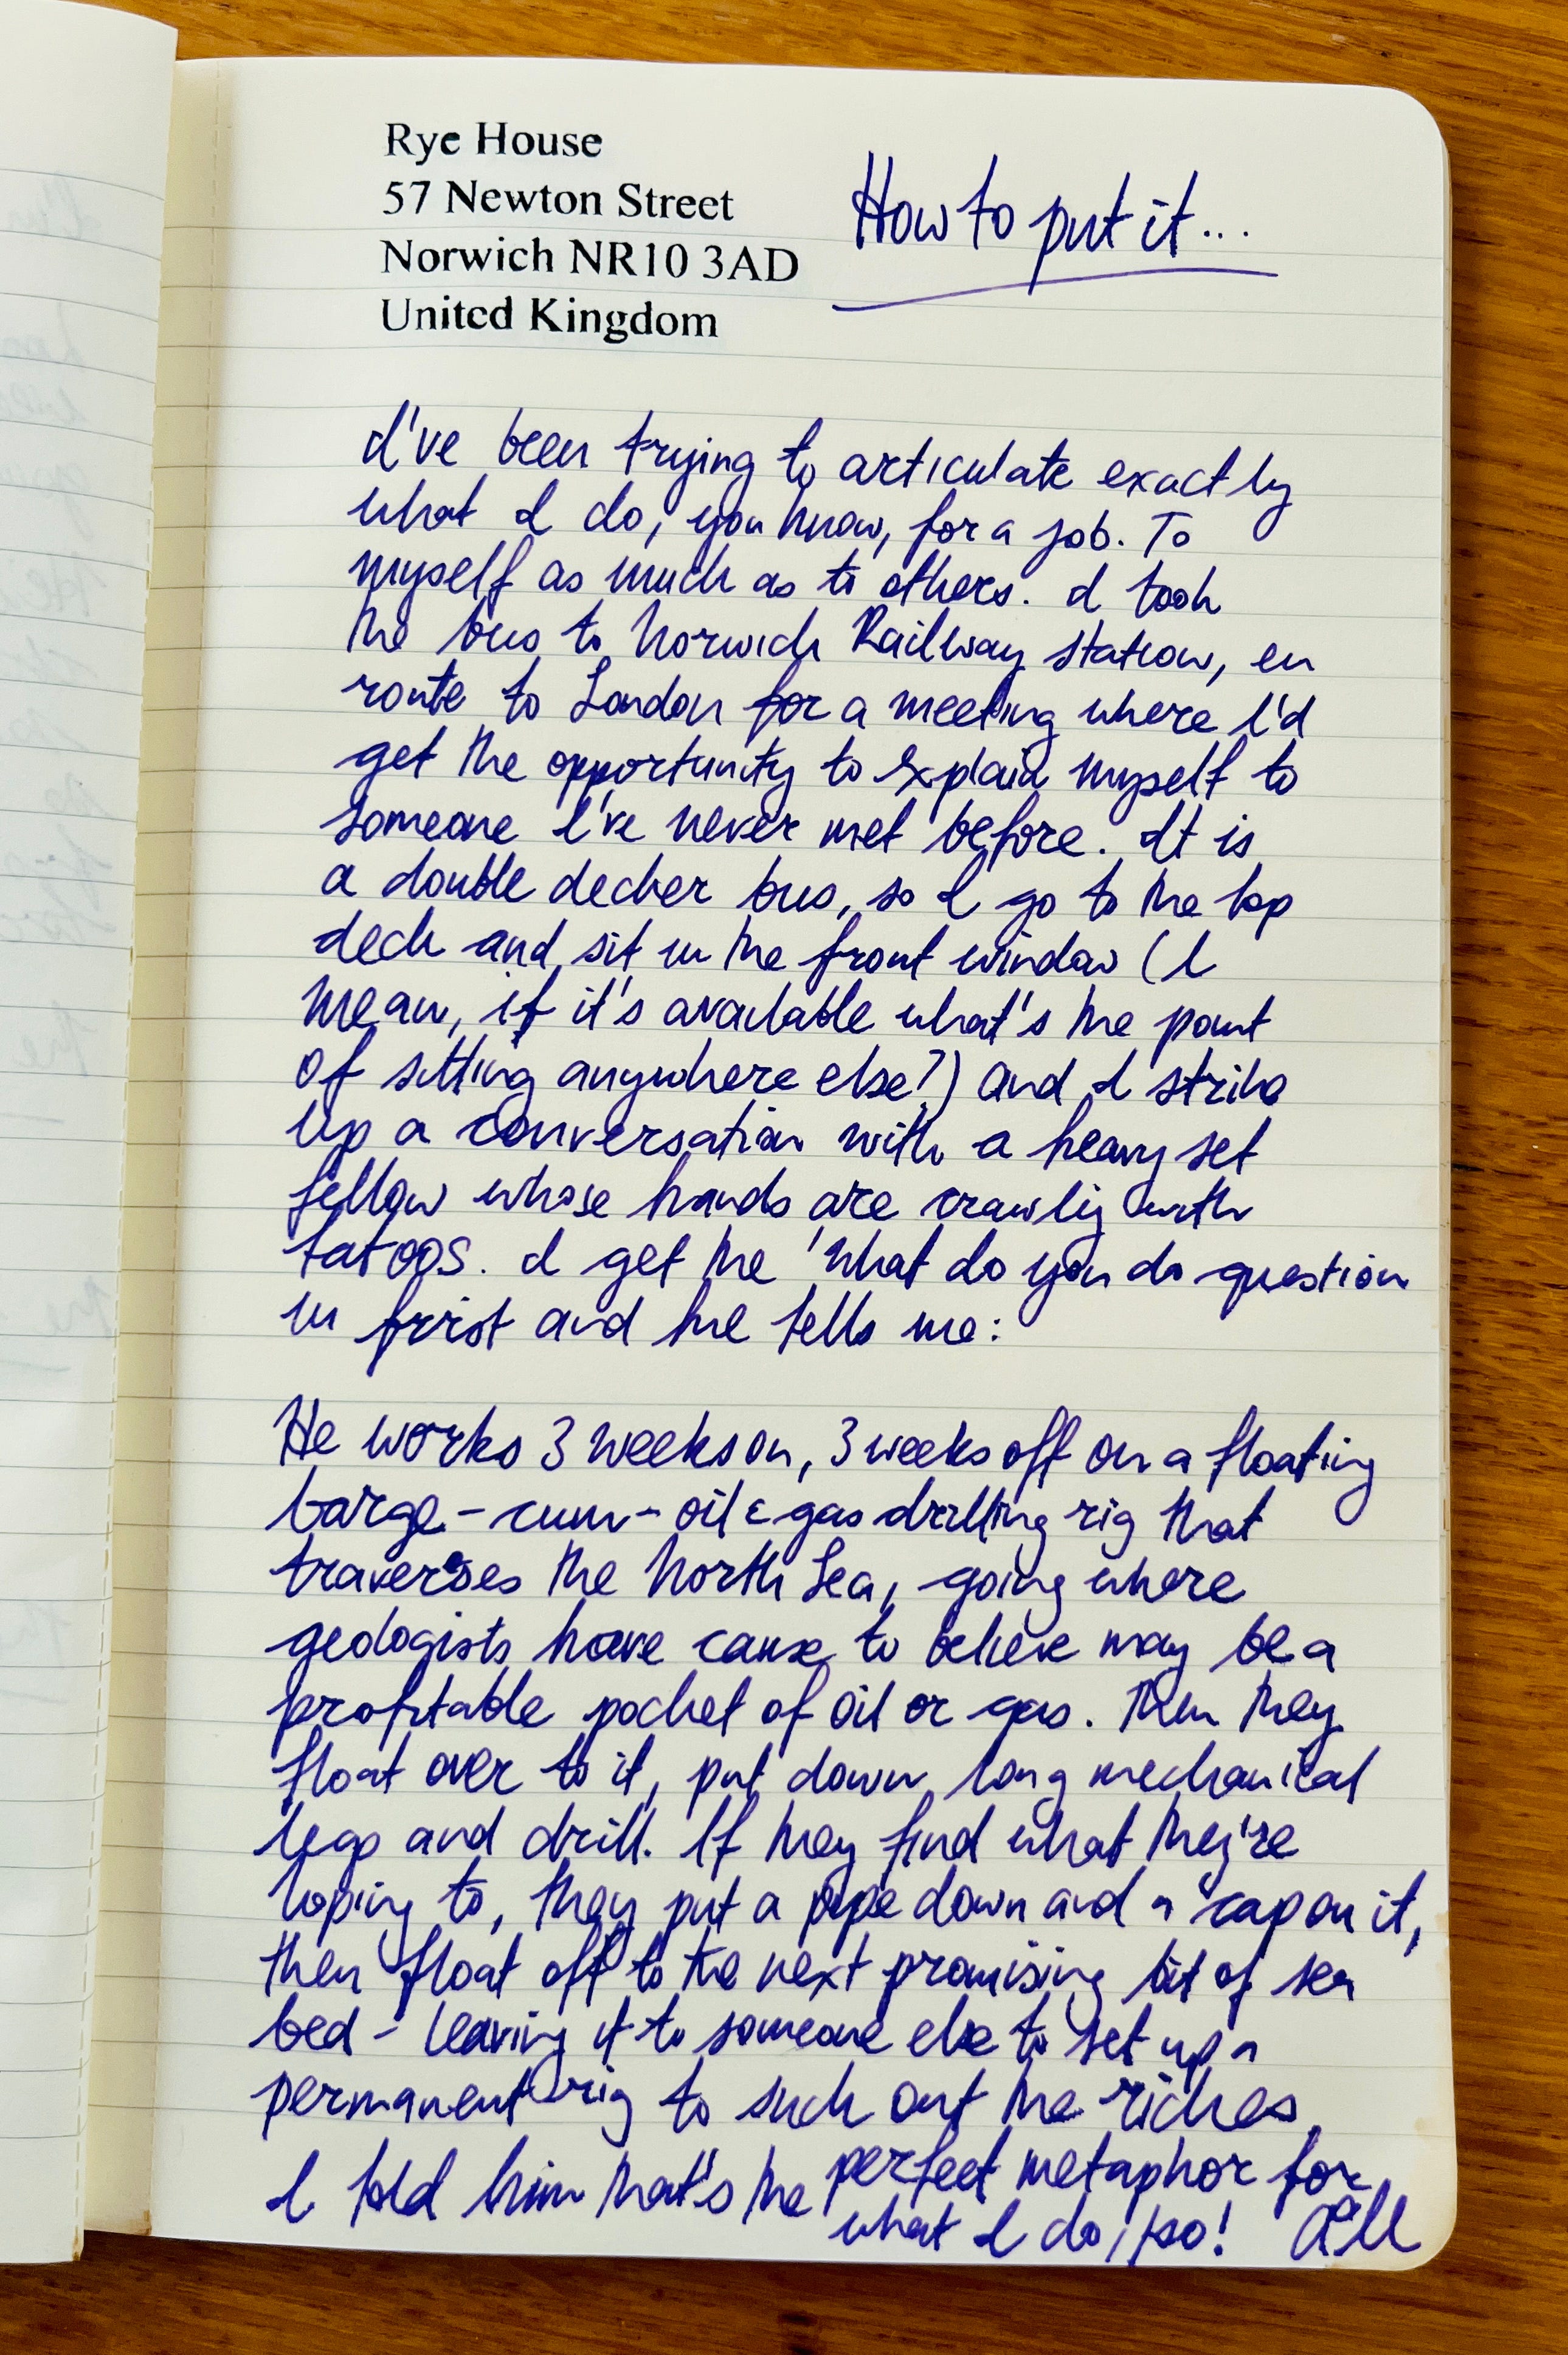 Rye House
57 Newton Street
Norwich NR10 3AD
United Kingdom
How to put it...
I've been trying to articulate exactly
what I do, you know, for a job. To
myself as much as to others. I took
the bus to Norwich Railway station, en
route to London for a meeting where I'd
get the opportunity to explain myself to
someone I've never met before. It is
a double decker bus, so I go to the top
deck and sit in the front window (I
mean, if it's available what's the point
of sitting anywhere else?) and I strike
up a conversation with a heavy set
fellow whose hands are crawlig with
tatoos. I get the 'what do you do question
in first and he tells me:
He works 3 weeks on, 3 weeks off on a floating
barge-cum-oil & gas drilling rig that
traverses the North Sea, going where
geologists have cause to believe may be a
profitable pocket of oil or gas. Then they
float over to it, put down long mechanical
legs and drill. If they find what they're
hoping to, they put a pipe down and a cap on it,
then float off to the next promising bit of sea
bed - leaving it to someone else to set up a
permanent rig to suck out the riches.
I told him that's the perfect metaphor for
what I do,